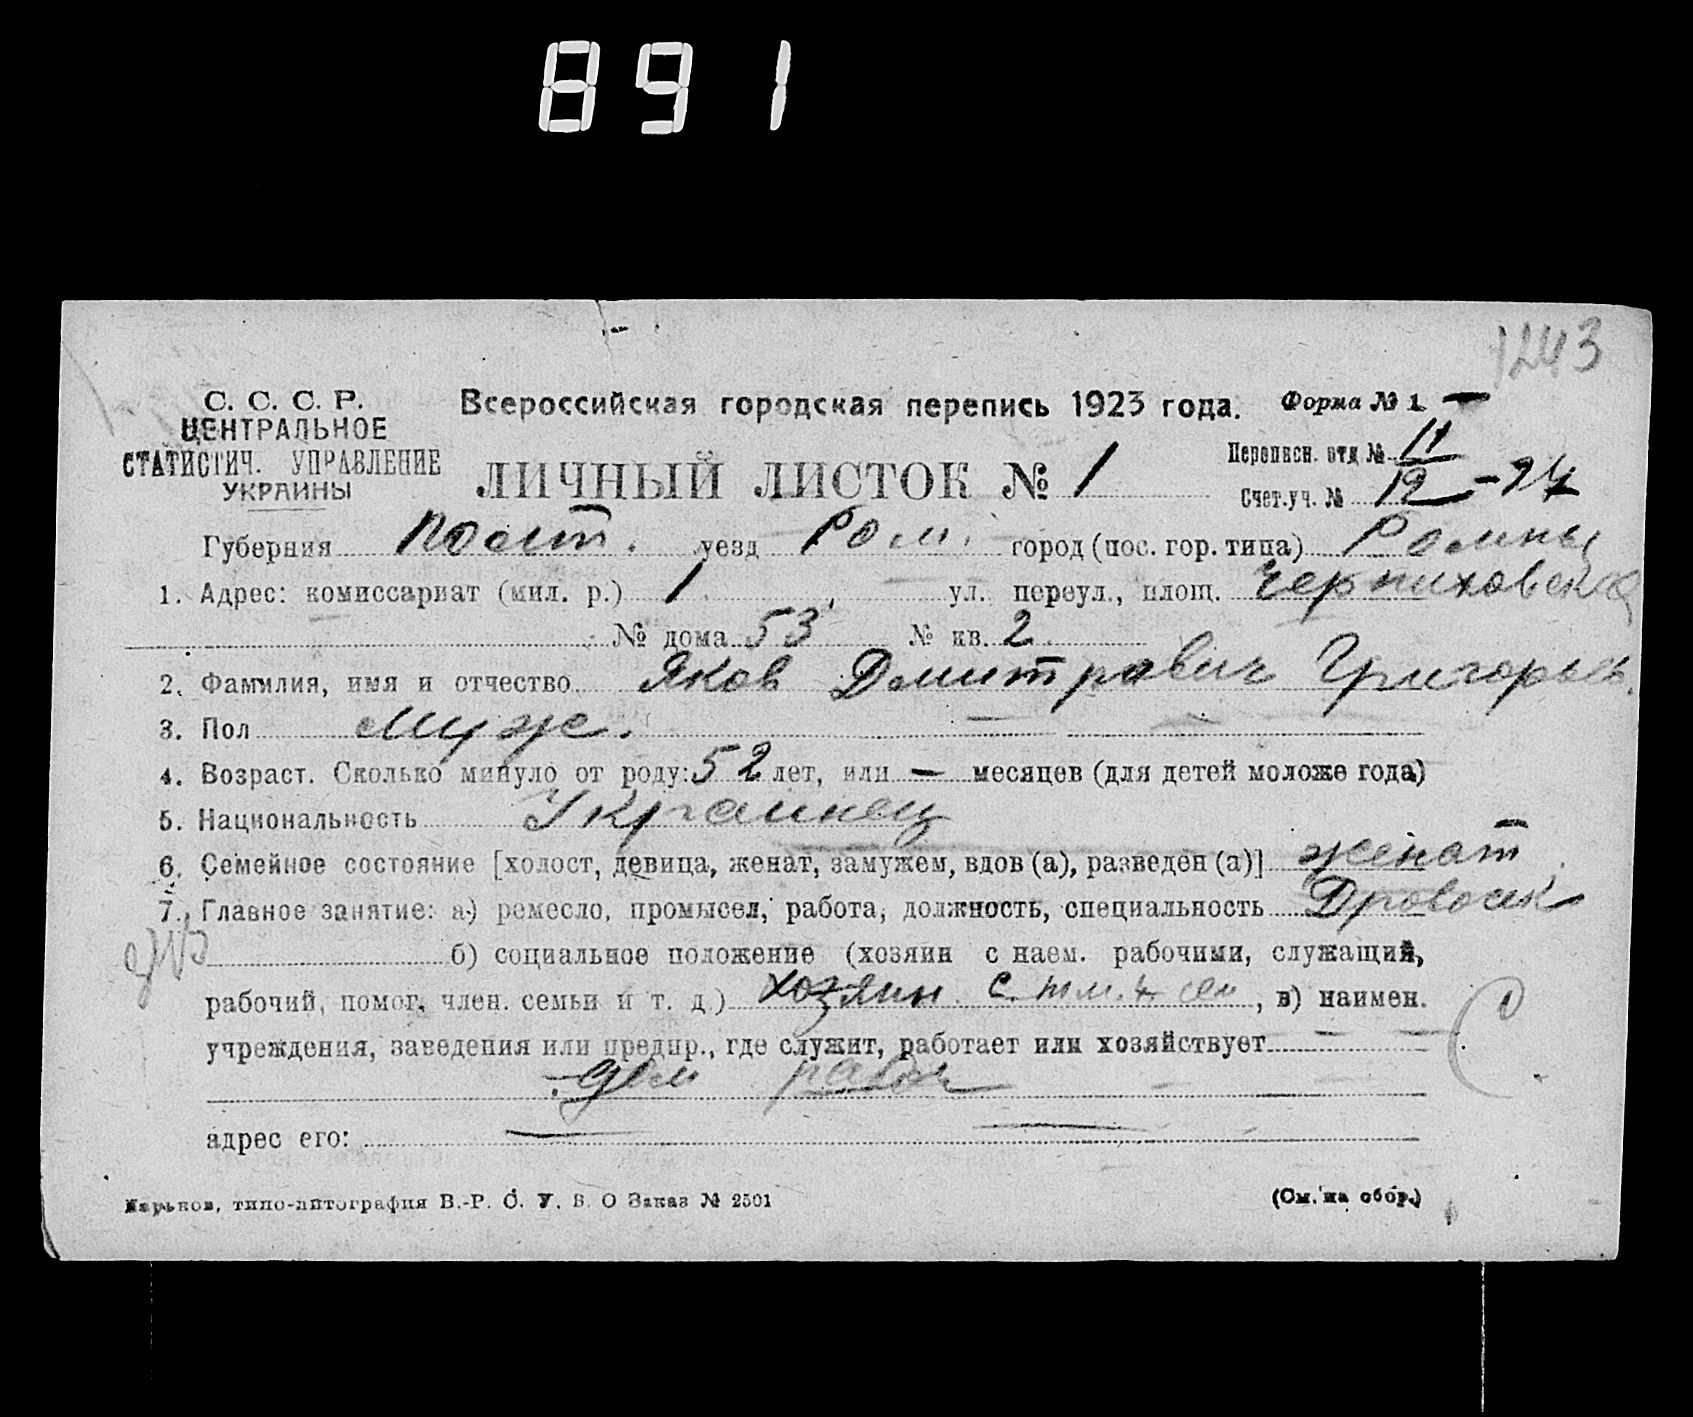 891
1243
С. С. С. Р.
ЦЕНТРАЛЬНОЕ
СТАТИСТИЧ. УПРАВЛЕНИЕ
УКРАИНЫ
Всероссийская городская перепись 1923 года.
Форма № 1
ЛИЧНЫЙ ЛИСТОК № 1
Переписн. отд № 11
Счет.уч. № 19
Губерния Полт. уезд Ром. город (пос. гор. типа) Ромны
1. Адрес: комиссариат (мил. р.) 1 ул. переул., площ.
№ дома 53 № кв. 2
2. Фамилия, имя и отчество Яков Дмитрович Григорьев
3. Пол Муж.
4. Возраст. Сколько минуло от роду: 52 лет, или — месяцев (для детей моложе года)
5. Национальность Украинец
6. Семейное состояние [холост, девица, женат, замужем, вдов (а), разведен (а)] женат
7. Главное занятие: а) ремесло, промысел, работа, должность, специальность Дровосек
б) социальное положение (хозяин с наем. рабочими, служащий,
рабочий, помог. член. семьи и т. д.) хозяин с , в) наимен.
учреждения, заведения или предпр., где служит, работает или хозяйствует
дом
адрес его: —
Харьков, типо-литография В.-Р. С. У. В. О Заказ № 2501
(См. на обор.)